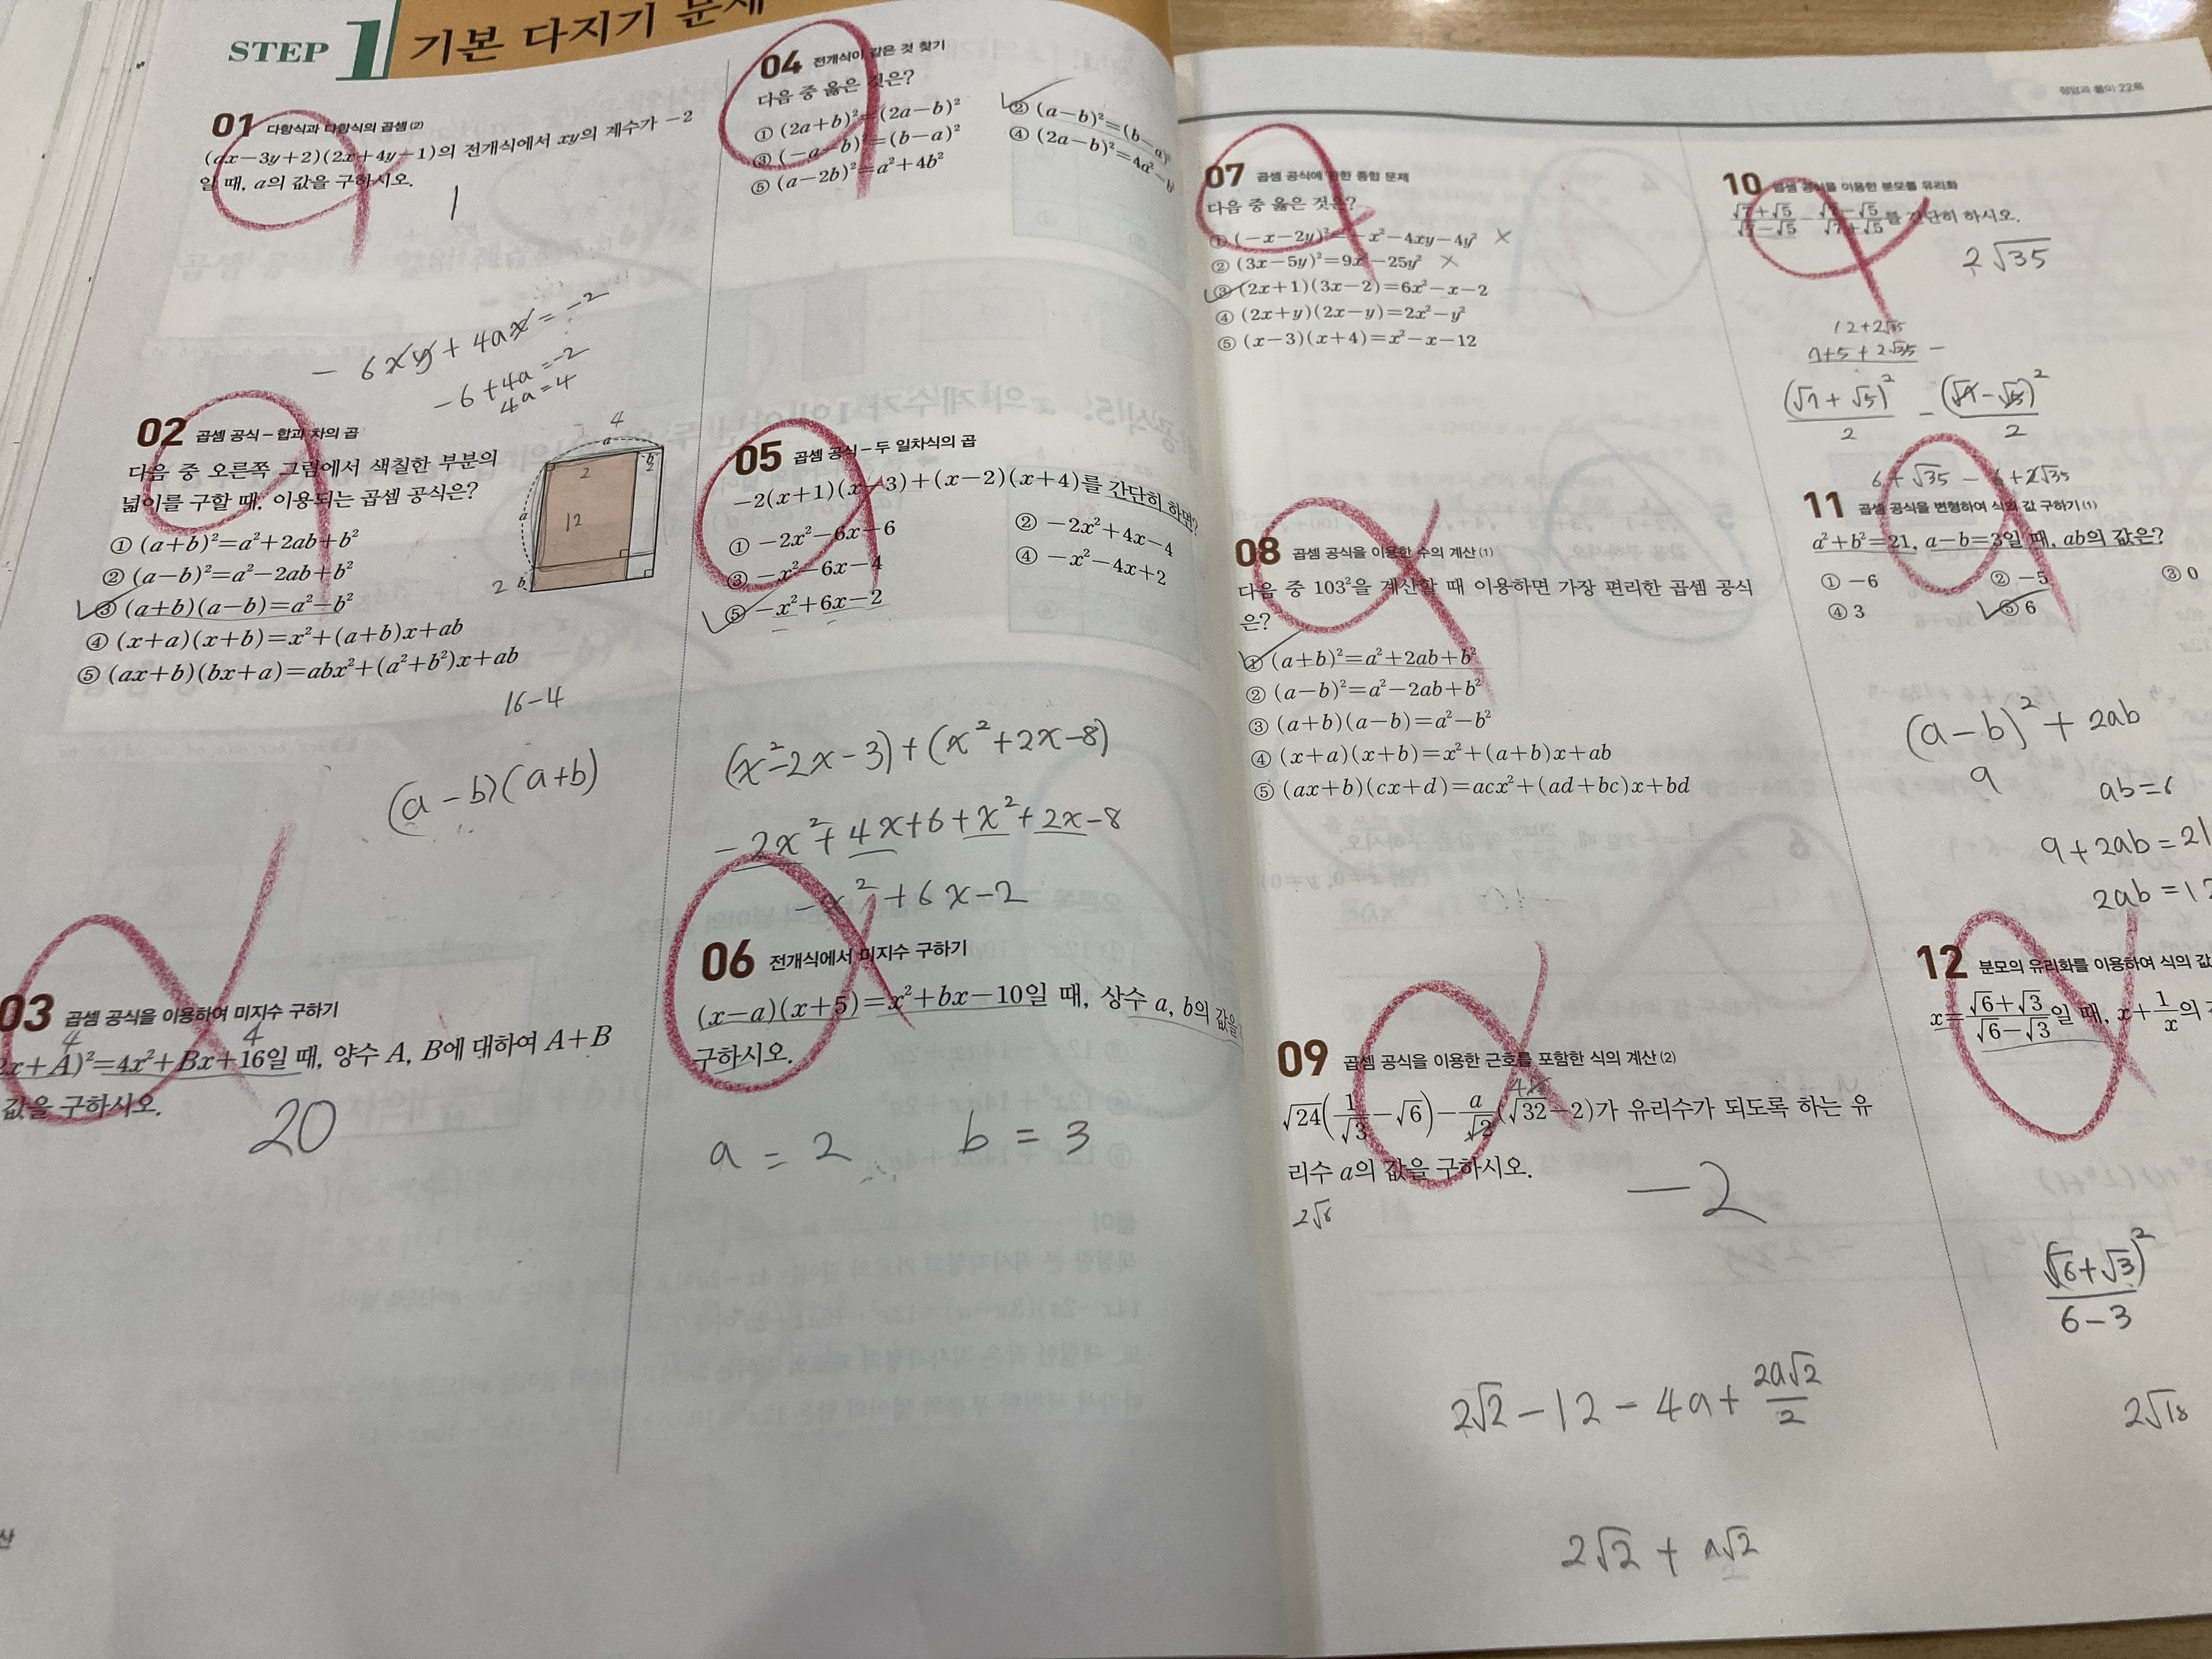 STEP 1 기본 다지기 문제
01 다항식과 다항식의 곱셈(2)
(ax-3y+2)(2x+4y-1)의 전개식에서 xy의 계수가 -2
일 때, a의 값을 구하시오.
1
- 6xy + 4ax = -2
-6+4a=-2
4a=4
02 곱셈 공식-합과 차의 곱
다음 중 오른쪽 그림에서 색칠한 부분의
넓이를 구할 때, 이용되는 곱셈 공식은?
① (a+b)²=a²+2ab+b²
② (a-b)²=a²-2ab+b²
③ (a+b)(a-b)=a²-b²
④ (x+a)(x+b)=x²+(a+b)x+ab
⑤ (ax+b)(bx+a)=abx²+(a²+b²)x+ab
4
a
b
2
2
a
12
2 b
16-4
(a-b)(a+b)
03 곱셈 공식을 이용하여 미지수 구하기
4
4
2x+A)²=4x²+Bx+16일 때, 양수 A, B에 대하여 A+B
값을 구하시오.
20
04 전개식이 같은 것 찾기
다음 중 옳은 것은?
① (2a+b)²=(2a-b)²
② (a-b)²=(b-a)²
③ (-a-b)²=(b-a)²
④ (2a-b)²=4a²-b
⑤ (a-2b)²=a²+4b²
05 곱셈 공식-두 일차식의 곱
-2(x+1)(x-3)+(x-2)(x+4)를 간단히 하면?
① -2x²-6x-6
② -2x²+4x-4
③ -x²-6x-4
④ -x²-4x+2
⑤ -x²+6x-2
(x²-2x-3)+(x²+2x-8)
-2x²+4x+6+x²+2x-8
-x²+6x-2
06 전개식에서 미지수 구하기
(x-a)(x+5)=x²+bx-10일 때, 상수 a, b의 값을
구하시오.
a = 2 b = 3
정답과 풀이 22쪽
07 곱셈 공식에 관한 종합 문제
다음 중 옳은 것은?
① (-x-2y)²=-x²-4xy-4y² ×
② (3x-5y)²=9x²-25y² ×
③ (2x+1)(3x-2)=6x²-x-2
④ (2x+y)(2x-y)=2x²-y²
⑤ (x-3)(x+4)=x²-x-12
08 곱셈 공식을 이용한 수의 계산(1)
다음 중 103²을 계산할 때 이용하면 가장 편리한 곱셈 공식
은?
① (a+b)²=a²+2ab+b²
② (a-b)²=a²-2ab+b²
③ (a+b)(a-b)=a²-b²
④ (x+a)(x+b)=x²+(a+b)x+ab
⑤ (ax+b)(cx+d)=acx²+(ad+bc)x+bd
09 곱셈 공식을 이용한 근호를 포함한 식의 계산(2)
√24(1/√3-√6)-a/√2(√32-2)가 유리수가 되도록 하는 유
리수 a의 값을 구하시오.
2√6
-2
2√2-12-4a+2a√2/2
2√2+a√2
10 곱셈 공식을 이용한 분모를 유리화
(√7+√5)/(√7-√5)-(√7-√5)/(√7+√5)를 간단히 하시오.
2√35
12+2√35
7+5+2√35 -
(√7+√5)²/2 - (√7-√5)²/2
6+√35 - 6+2√35
11 곱셈 공식을 변형하여 식의 값 구하기(1)
a²+b²=21, a-b=3일 때, ab의 값은?
① -6
② -5
③ 0
④ 3
⑤ 6
(a-b)²+2ab
9
ab=6
9+2ab=21
2ab=12
12 분모의 유리화를 이용하여 식의 값
x=(√6+√3)/(√6-√3)일 때, x+1/x의
(√6+√3)²/(6-3)
2√18
산